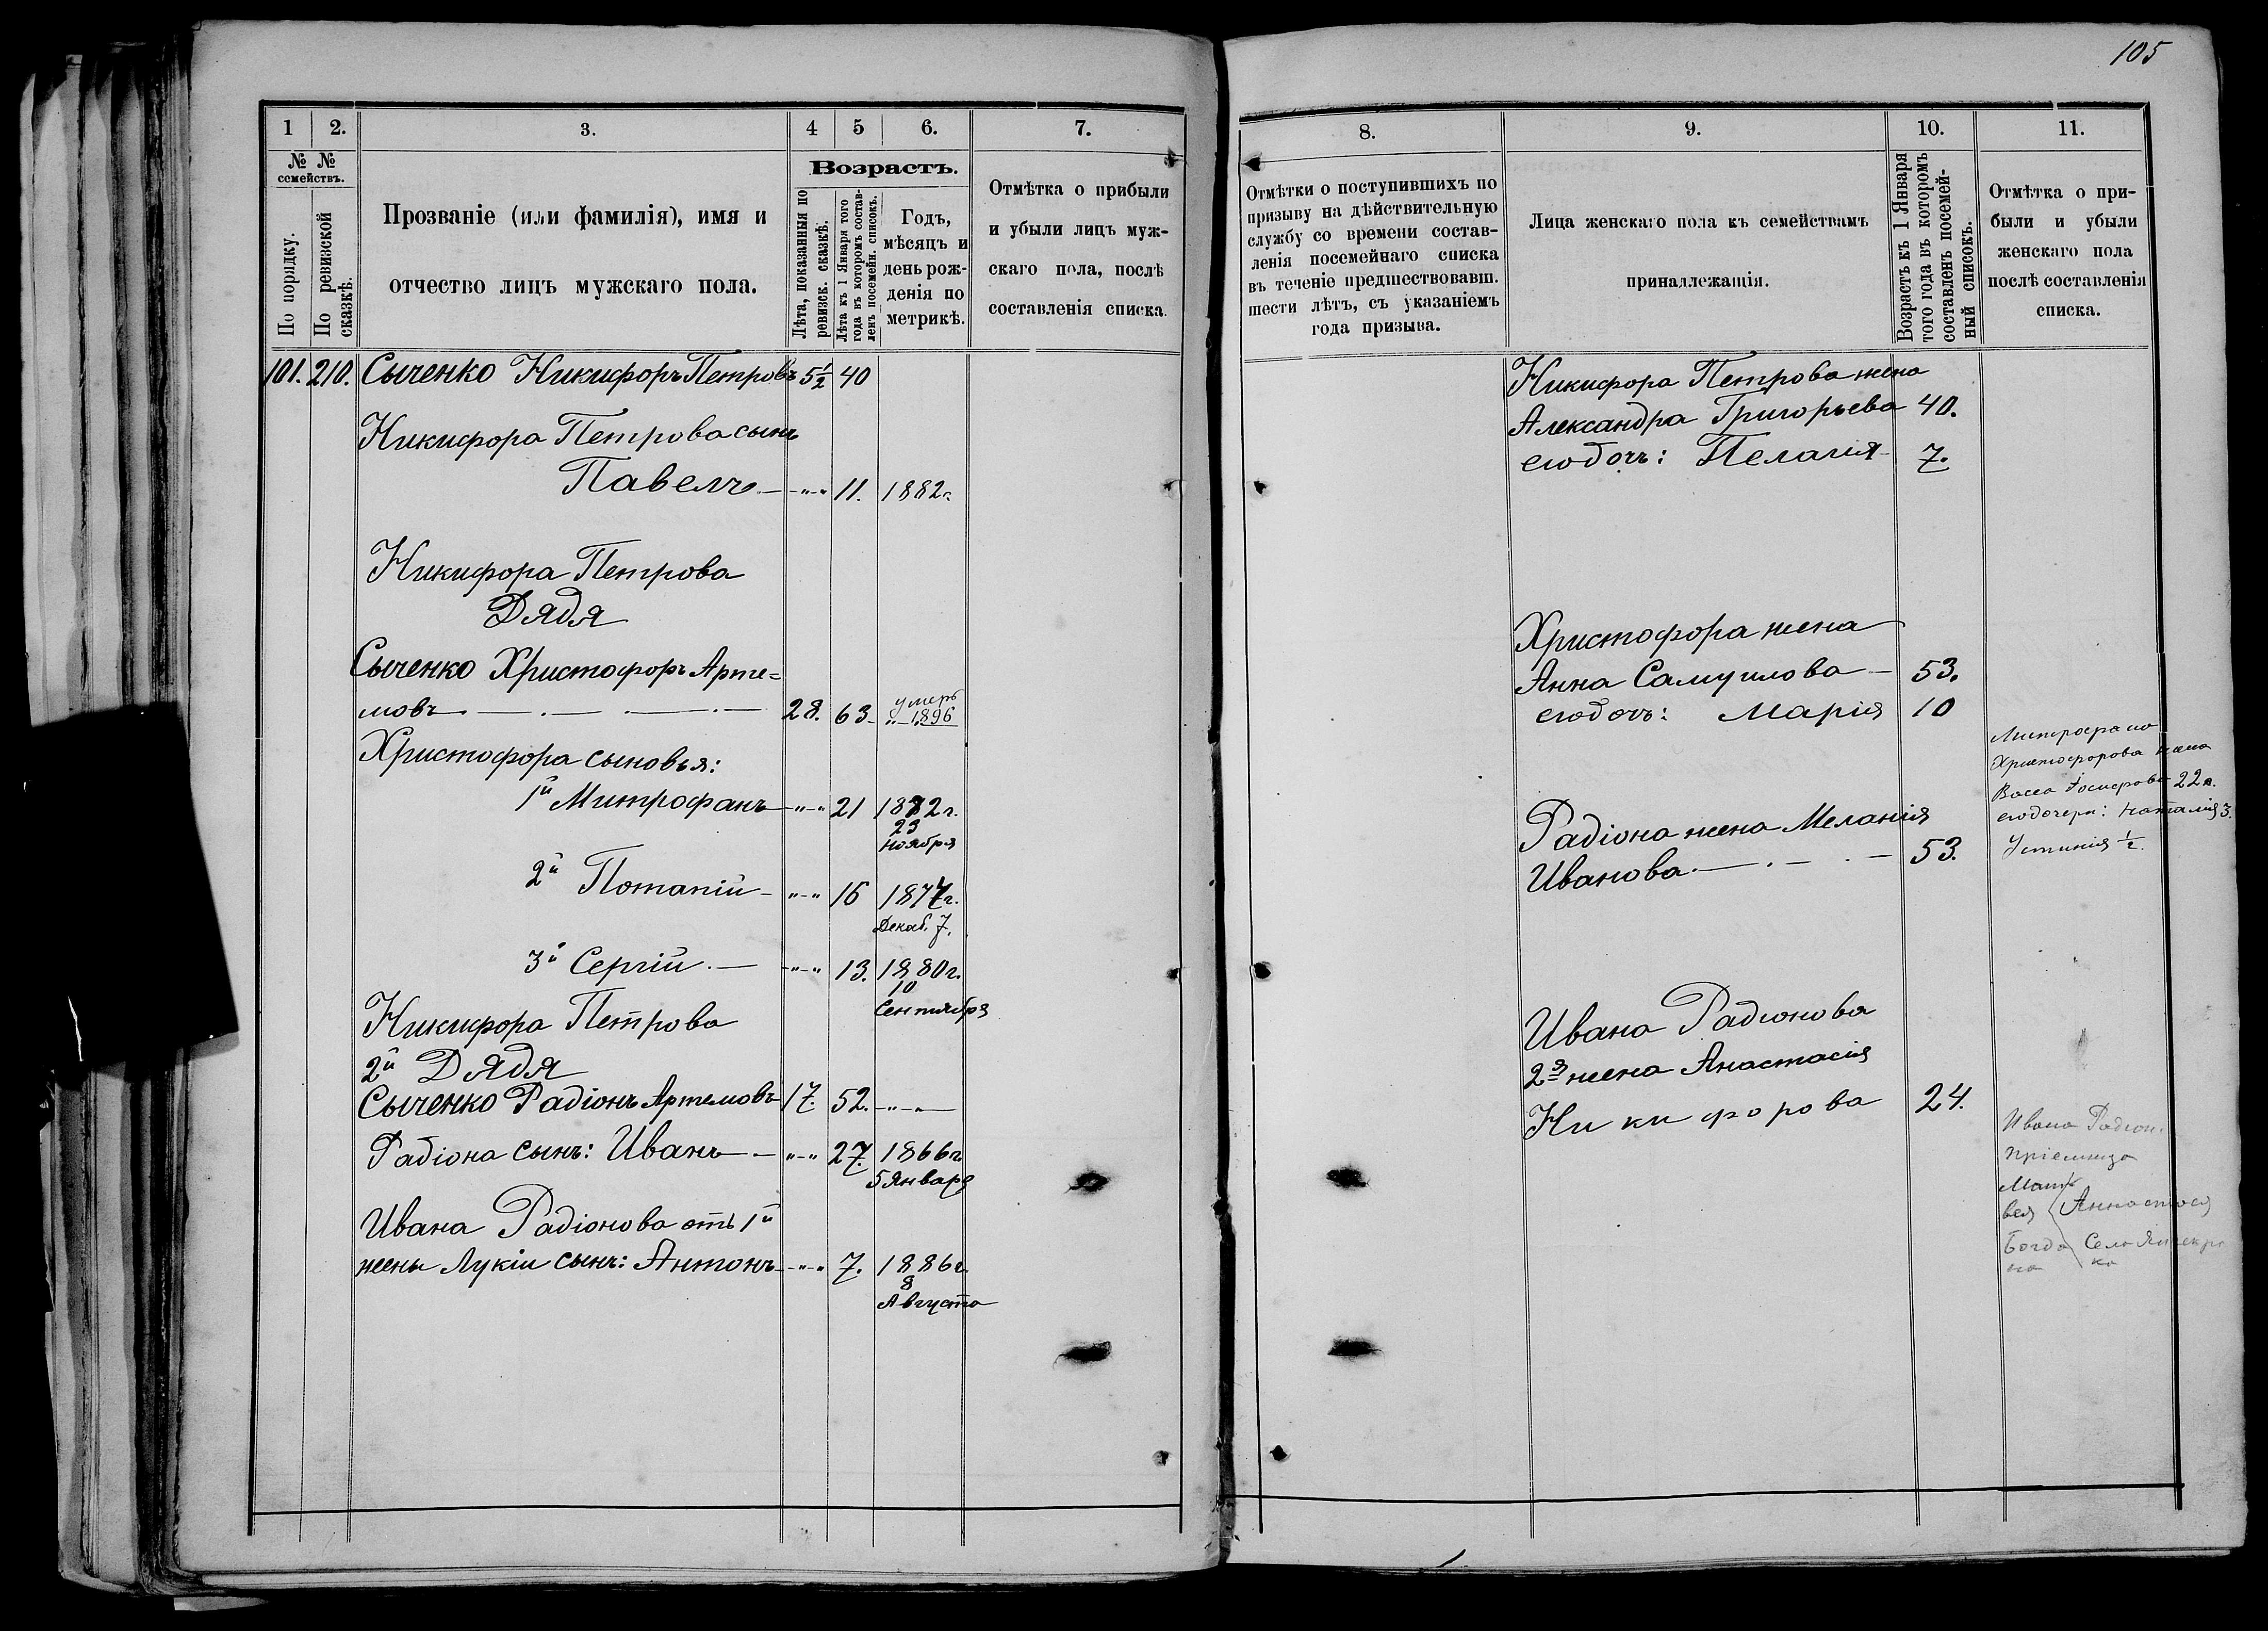 105
1 2. 3. 4 5 6. 7.
№ № семействъ.
По порядку.
По ревизской сказкѣ.
Прозваніе (или фамилія), имя и
отчество лицъ мужскаго пола.
Возрастъ.
Лѣта, показанныя по ревизск. сказкѣ.
Лѣта къ 1 Января того года въ которомъ составленъ посемейн. списокъ.
Годъ,
мѣсяцъ и
день рож-
денія по
метрикѣ.
Отмѣтка о прибыли
и убыли лицъ муж-
скаго пола, послѣ
составленія списка.
101. 210. Сыченко Никифоръ Петровъ 5½ 40
Никифора Петрова сынъ
Павелъ — -"-" 11. 1882г.
Никифора Петрова
Дядя
Сыченко Христофоръ Арте=
мовъ 28. 63 умеръ
"-1896
Христофора сыновья:
1й Митрофанъ -"-" 21 1872г.
23
Ноября
2й Потапій -"-" 16 1877г.
Декаб. 7.
3й Сергій. — -"-" 13. 1880г.
10
Сентября
Никифора Петрова
2й Дядя
Сыченко Радіонъ Артемовъ 17. 52. -"-
Радіона сынъ: Иванъ — -"-" 27. 1866г.
5 Января
Ивана Радіонова отъ 1й
жены Лукіи сынъ: Антонъ -"-" 7. 1886г.
8
Августа
8. 9. 10. 11.
Отмѣтки о поступившихъ по
призыву на дѣйствительную
службу со времени состав-
ленія посемейнаго списка
въ теченіе предшествовавш.
шести лѣтъ, съ указаніемъ
года призыва.
Лица женскаго пола къ семействамъ
принадлежащія.
Возрастъ къ 1 Января
того года въ которомъ
составленъ посемей-
ный списокъ.
Отмѣтка о при-
были и убыли
женскаго пола
послѣ составленія
списка.
Никифора Петрова жена
Александра Григорьева 40.
его дочь: Пелагія 7.
Христофора жена
Анна Самуилова — 53.
его дочь: Марія 10
Митрофана
Христофорова жена
Васса 22 л.
его дочери: Наталія 3.
Устинія ½.
Радіона жена Меланія
Иванова. — 53.
Ивана Радіонова
2я жена Анастасія
Никифорова 24.
Ивана Радіон.
пріемница
Мат
вея
Богда
на
Анастасія
Село